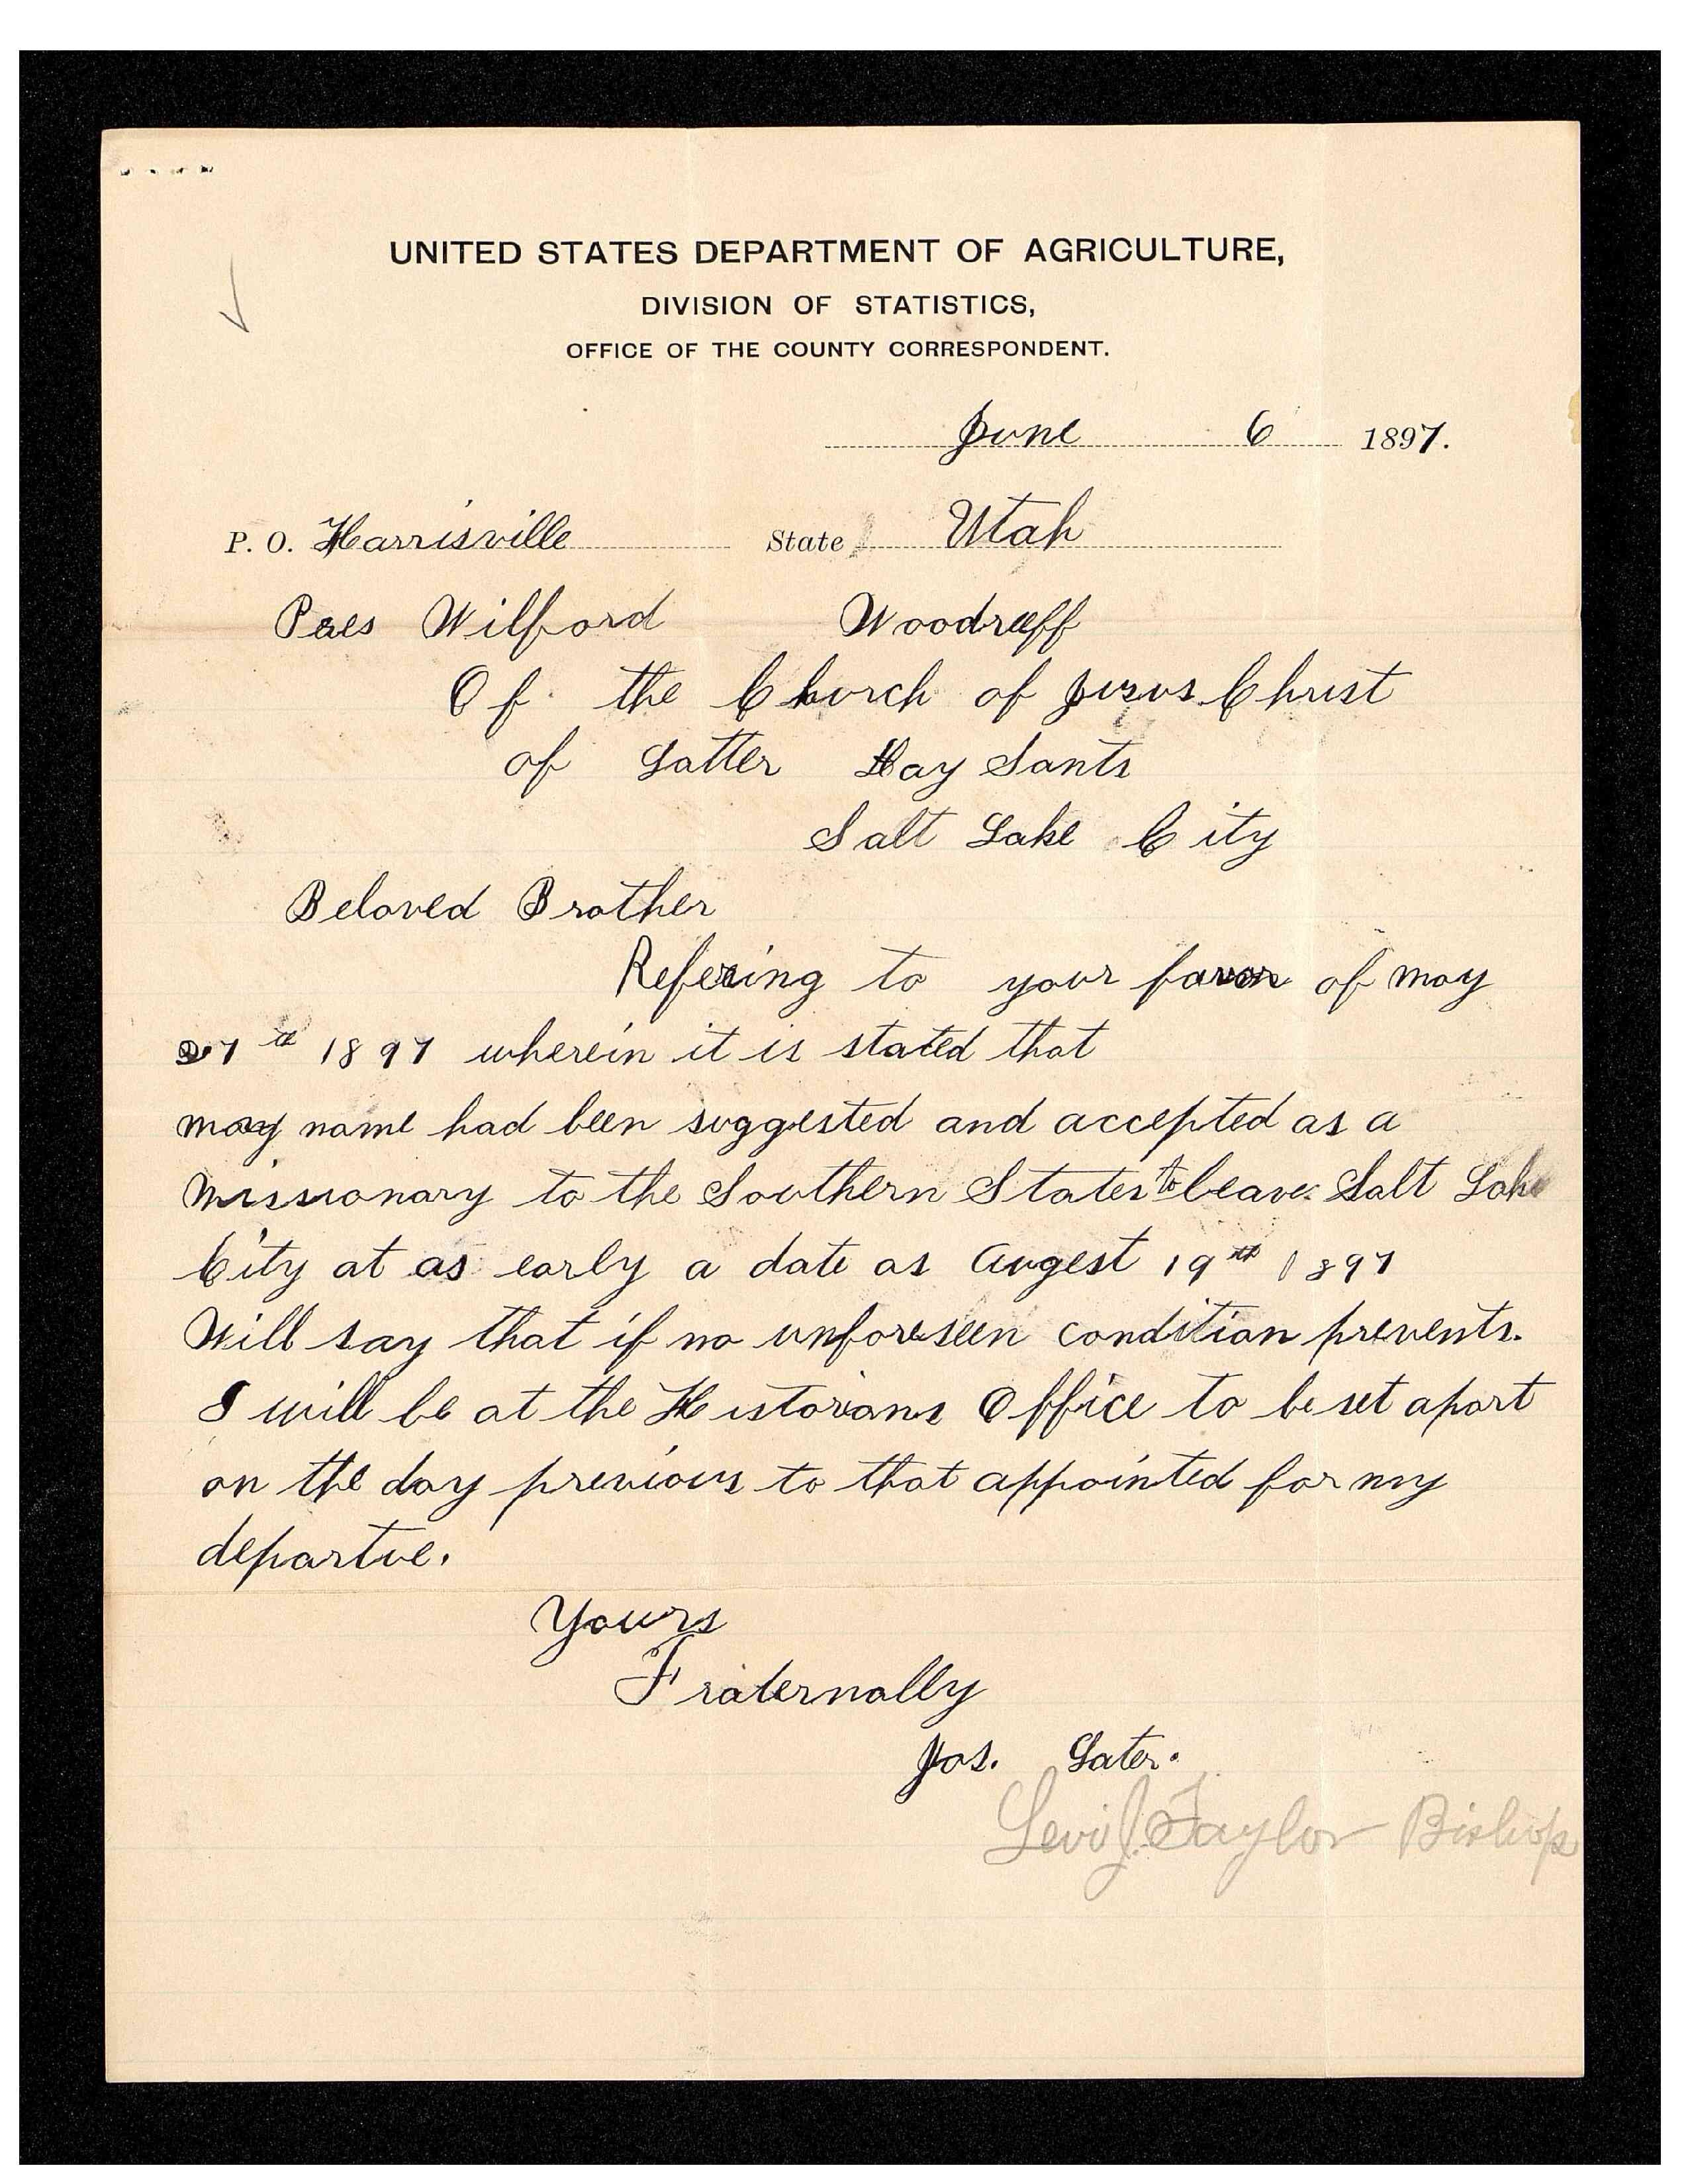 UNITED STATES DEPARTMENT OF AGRICULTURE,
DIVISION OF STATISTICS,
OFFICE OF THE COUNTY CORRESPONDENT.
June 6 1897.
P. O. Harrisville State Utah
Pres Wilford Woodruff
Of the Church of Jesus Christ
of Latter Day Sants
Salt Lake City
Beloved Brother
Refering to your favor of may
27th 1897 wherein it is stated that
may name had been suggested and accepted as a
missionary to the Southern States to leave Salt Lake
City at as early a date as Augest 19th 1897
Will say that if no unforeseen condition prevents.
I will be at the Historans Office to be set apart
on the day previous to that appointed for my
departue.
Yours
Fraternally
Jos. Later.
Levi J. Taylor Bishop